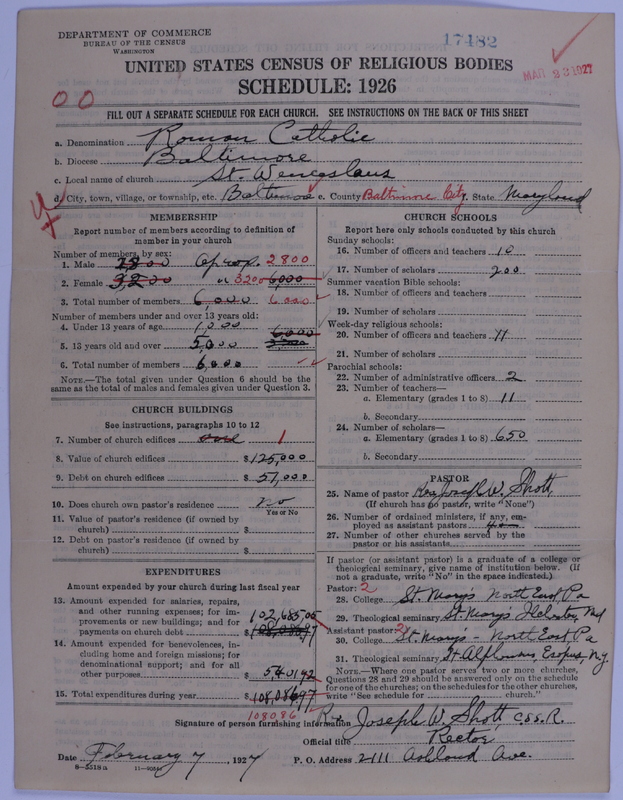 DEPARTMENT OF COMMERCE
BUREAU OF THE CENSUS
WASHINGTON
17482
MAR 23 1927
UNITED STATES CENSUS OF RELIGIOUS BODIES
SCHEDULE: 1926
00
FILL OUT A SEPARATE SCHEDULE FOR EACH CHURCH. SEE INSTRUCTIONS ON THE BACK OF THIS SHEET
a. Denomination Roman Catholic
b. Diocese Baltimore
c. Local name of church St. Wenceslaus
d. City, town, village, or township, etc. Baltimore e. County Baltimore City f. State Maryland
MEMBERSHIP
Report number of members according to definition of
member in your church
Number of members, by sex:
1. Male 2800 Approx. 2800
2. Female 3200 or 3200 6,000
3. Total number of members 6,000 6000
Number of members under and over 13 years old:
4. Under 13 years of age 1,000
5. 13 years old and over 5,000 6,000
6. Total number of members 6,000
NOTE.—The total given under Question 6 should be
same as the total of males and females given under Question 3.
CHURCH BUILDINGS
See instructions, paragraphs 10 to 12
7. Number of church edifices one 1
8. Value of church edifices $125,000
9. Debt on church edifices $57,000
10. Does church own pastor's residence no
Yes or No
11. Value of pastor's residence (if owned by
church) $
12. Debt on pastor's residence (if owned by
church) $
EXPENDITURES
Amount expended by your church during last fiscal year
13. Amount expended for salaries, repairs,
and other running expense; for im-
provements or new buildings; and for
payments on church debt $ 102,685,05
14. Amount expended for benevolences, in-
cluding home and foreign missions; for
denominational support; and for all
other purposes $ 5401 92
15. Total expenditures during year $ 108,086 97
108086
CHURCH SCHOOLS
Report here only schools conducted by this church
Sunday schools:
16. Number of officers and teachers 10
17. Number of scholars 200
Summer vacation Bible schools:
18. Number of officers and teachers
19. Number of scholars
Week-day religious schools:
20. Number of officers and teachers 11
21. Number of scholars
Parochial schools:
22. Number of administrative officers 2
23. Number of teachers—
a. Elementary (grades 1 to 8) 11
b. Secondary
24. Number of scholars—
a. Elementary (grades 1 to 8) 650
b. Secondary
PASTOR
25. Name of pastor Rev. Joseph W. Shott
(If church has no pastor, write "None")
26. Number of ordained ministers, if any, em-
ployed as assistant pastors
27. Number of other churches served by the
pastor or his assistants
If pastor (or assistant pastor) is a graduate of a college or
theological seminary, give name of institution below. (If
not a graduate, write "No" in the space indicated.)
Pastor: 2
28. College St. Mary's North East Pa
29. Theological seminary St. Mary's Ilchester, Md
Assistant pastor: 2
30. College St. Mary's - North East Pa
31. Theological seminary St Alphonsus Esopus, N.Y.
NOTE.—Where one pastor serves two or more churches,
Questions 28 and 29 should be answered only on the schedule
for one of the churches; on the schedules for the other churches,
write "See schedule for church."
Signature of person furnishing information Rev. Joseph W. Shott, C.SS.R.
Official title Rector
Date February 7, 1927 P. O. Address 2111 Ashland Ave.
8-5518a